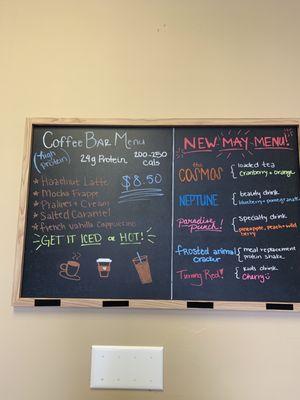 Coffee Bar Menu
(high protein) 24g Protein 200-250 cals
Hazelnut Latte
$8.50
Mocha Frappe
Pralines + Cream
Salted Caramel
French Vanilla Cappuccino
GET IT ICED or HOT!
NEW MAY MENU!
the COSMOS { loaded tea
cranberry + orange
NEPTUNE { beauty drink
blueberry + pomegranate
Paradise Punch! { specialty drink
pineapple, peach + wild berry
frosted animal cracker { meal replacement protein shake
Turning Red! { kids drink
Cherry